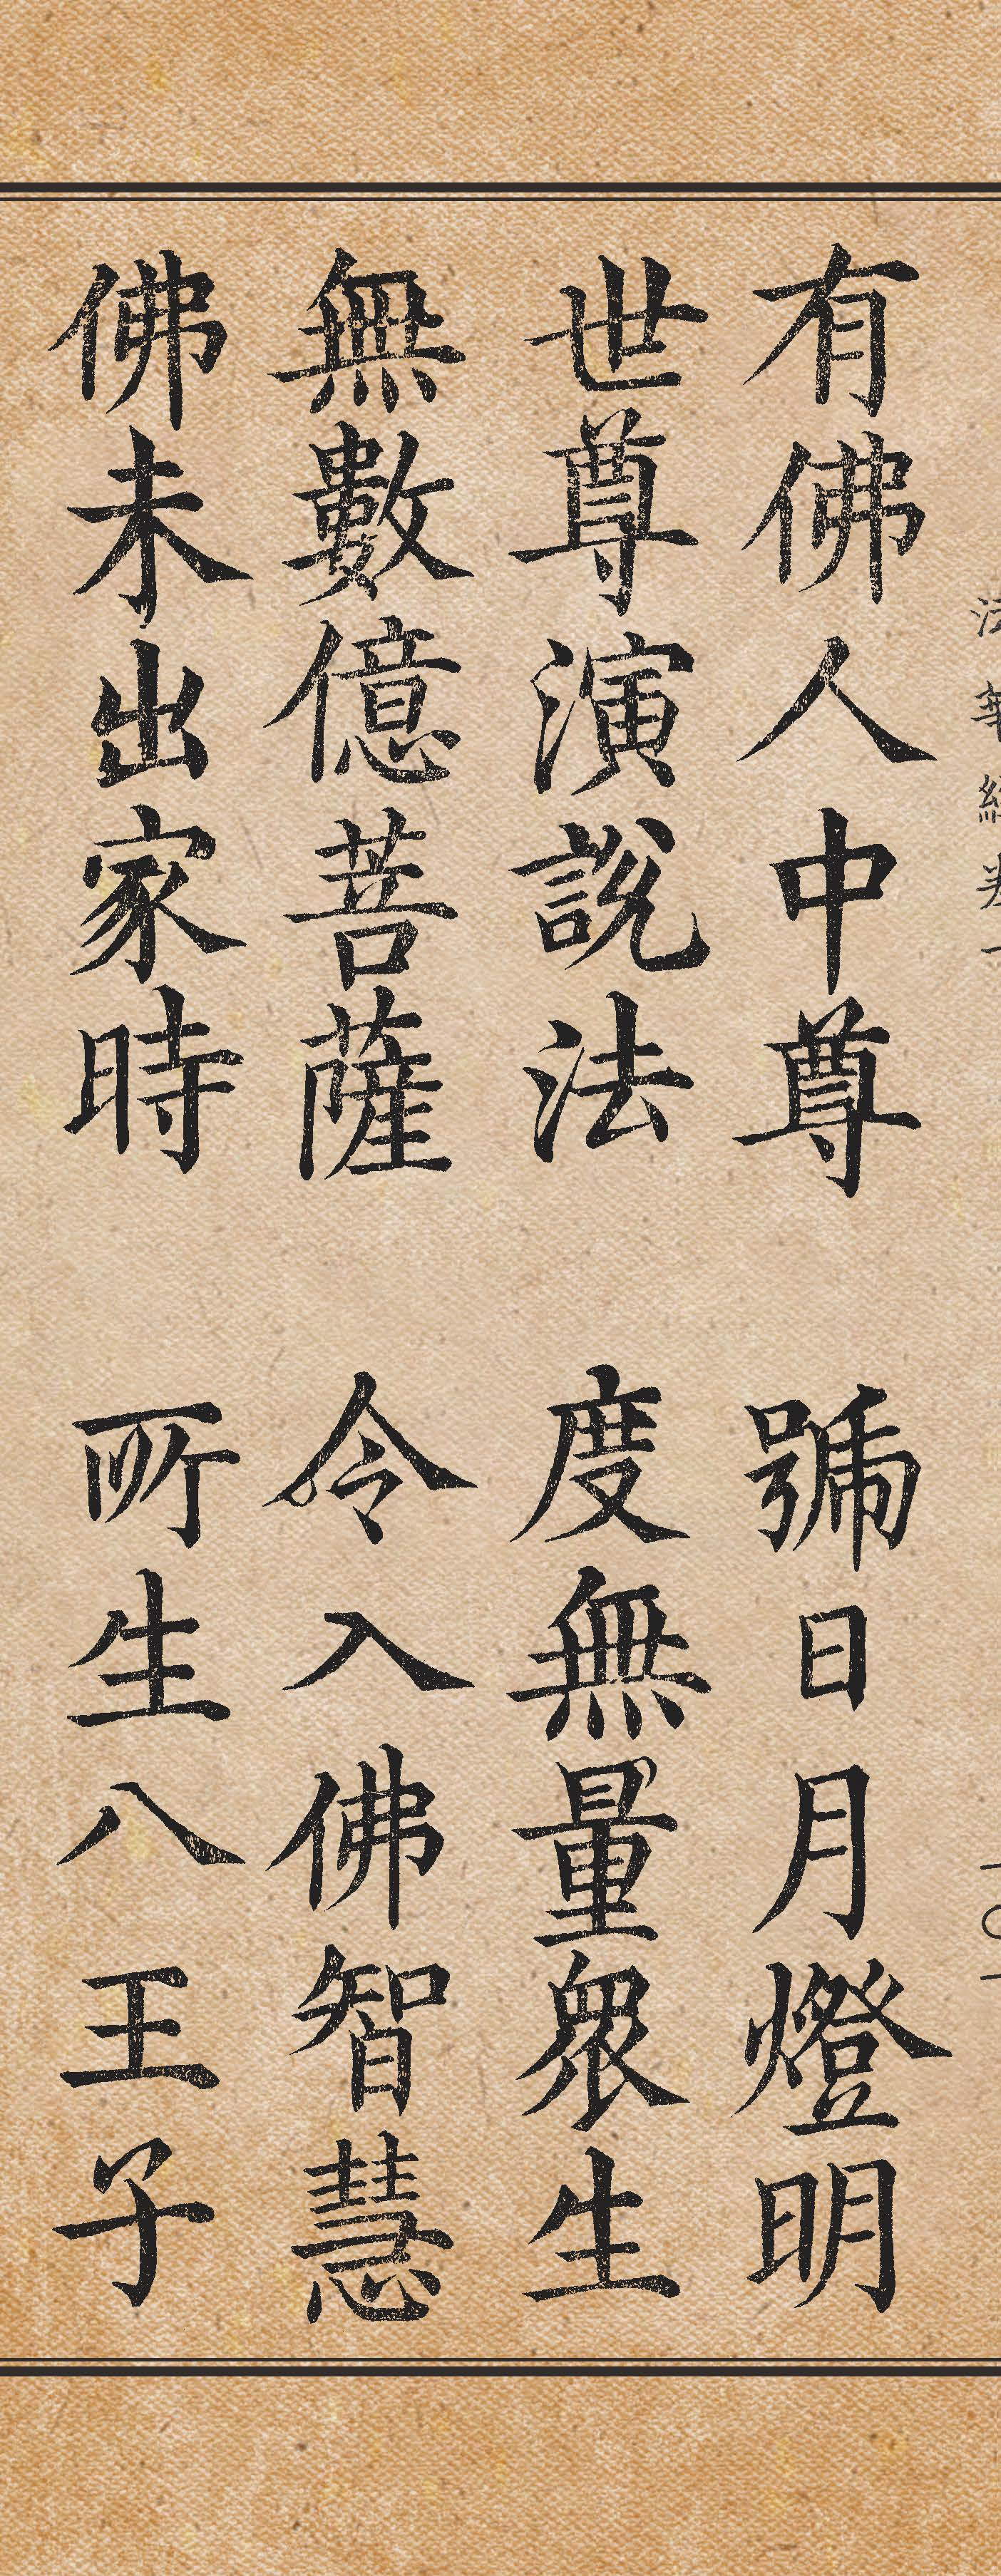 有佛人中尊 號日月燈明
世尊演說法 度無量眾生
無數億菩薩 令入佛智慧
佛未出家時 所生八王子